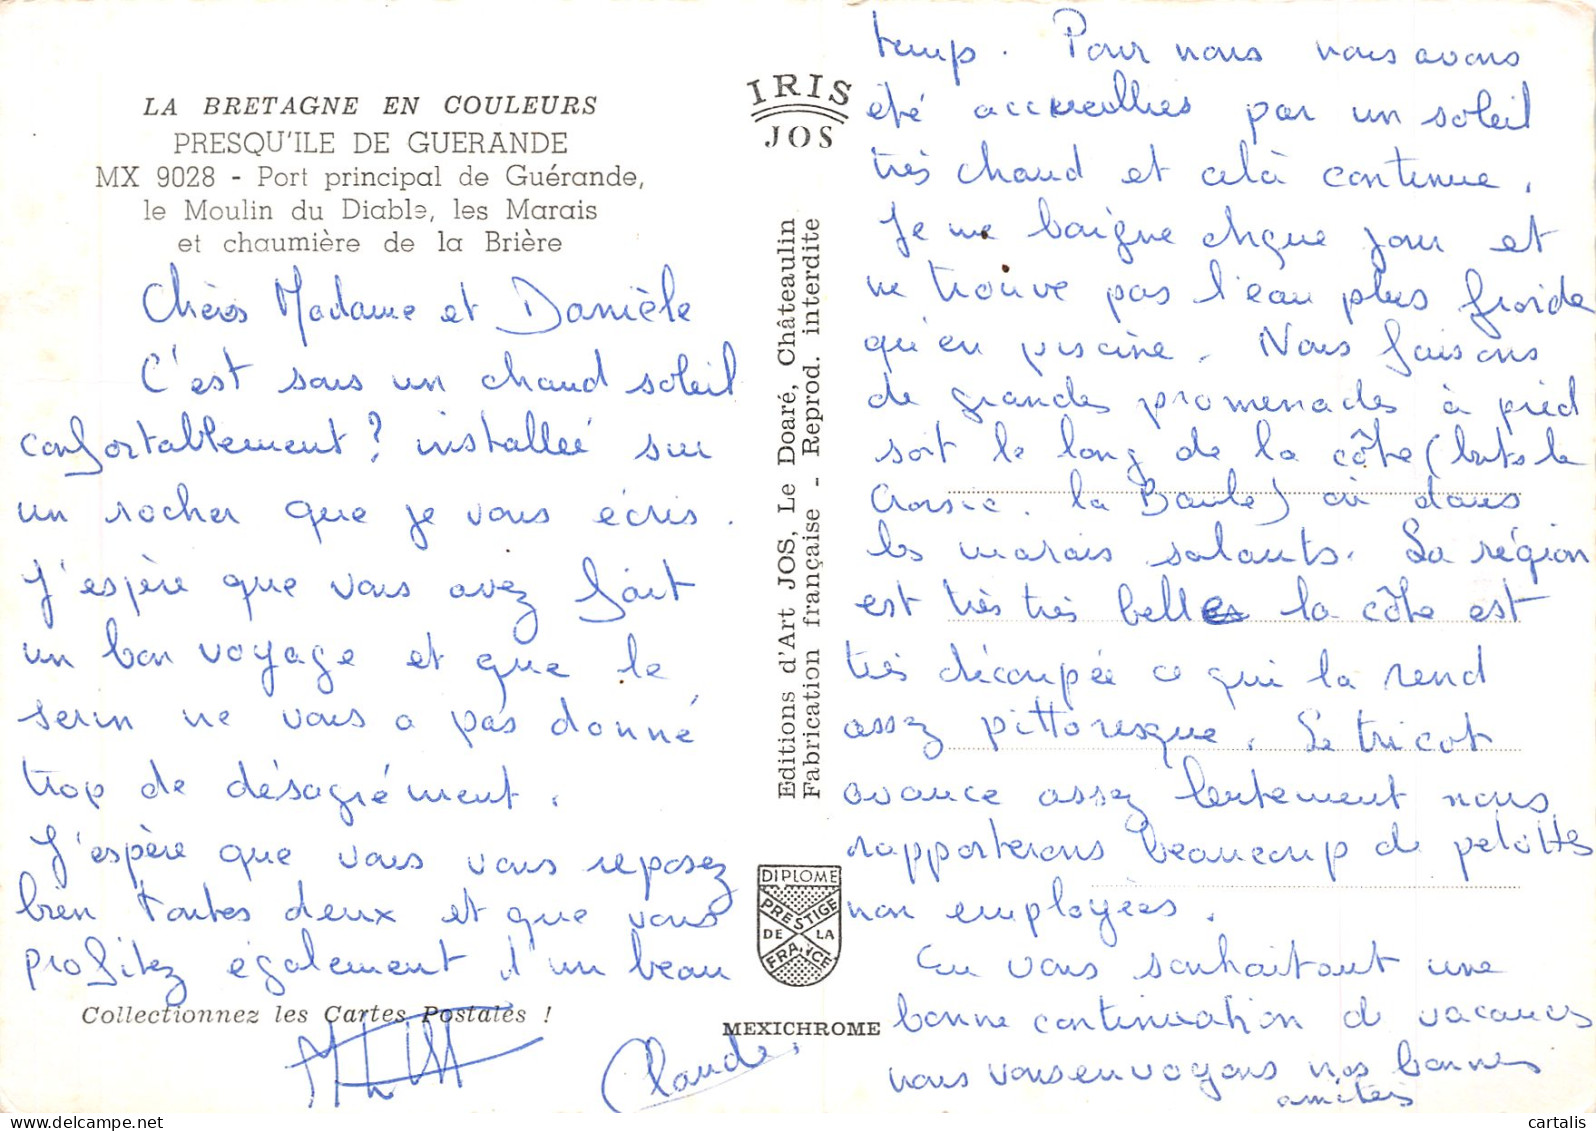 LA BRETAGNE EN COULEURS
PRESQU'ILE DE GUERANDE
MX 9028 - Port principal de Guérande,
le Moulin du Diable, les Marais
et chaumière de la Brière
Chères Madame et Danièle
C'est sous un chaud soleil
confortablement? installée sur
un rocher que je vous écris.
J'espère que vous avez fait
un bon voyage et que le
serin ne vous a pas donné
trop de désagrément.
J'espère que vous vous reposez
bien toutes deux et que vous
profitez également d'un beau
Collectionnez les Cartes Postales !
Claude.
IRIS
JOS
Editions d'Art JOS, Le Doaré, Châteaulin
Fabrication française - Reprod. interdite
DIPLOME
PRESTIGE
DE LA
FRANCE
MEXICHROME
temps. Pour nous nous avons
été accueillies par un soleil
très chaud et celà continue.
Je me baigne chque jour et
ne trouve pas l'eau plus froide
qu'en piscine. Nous faisons
de grandes promenades à pied
soit le long de la côte (
Croisic. la Baule) ou dans
les marais salants. La région
est très très belle la côte est
très découpée ce qui la rend
assez pittoresque. Le tricot
avance assez lentement nous
rapporterons beaucoup de pelottes
non employées.
En vous souhaitant une
bonne continuation de vacances
nous vous envoyons nos bonnes
amitiés